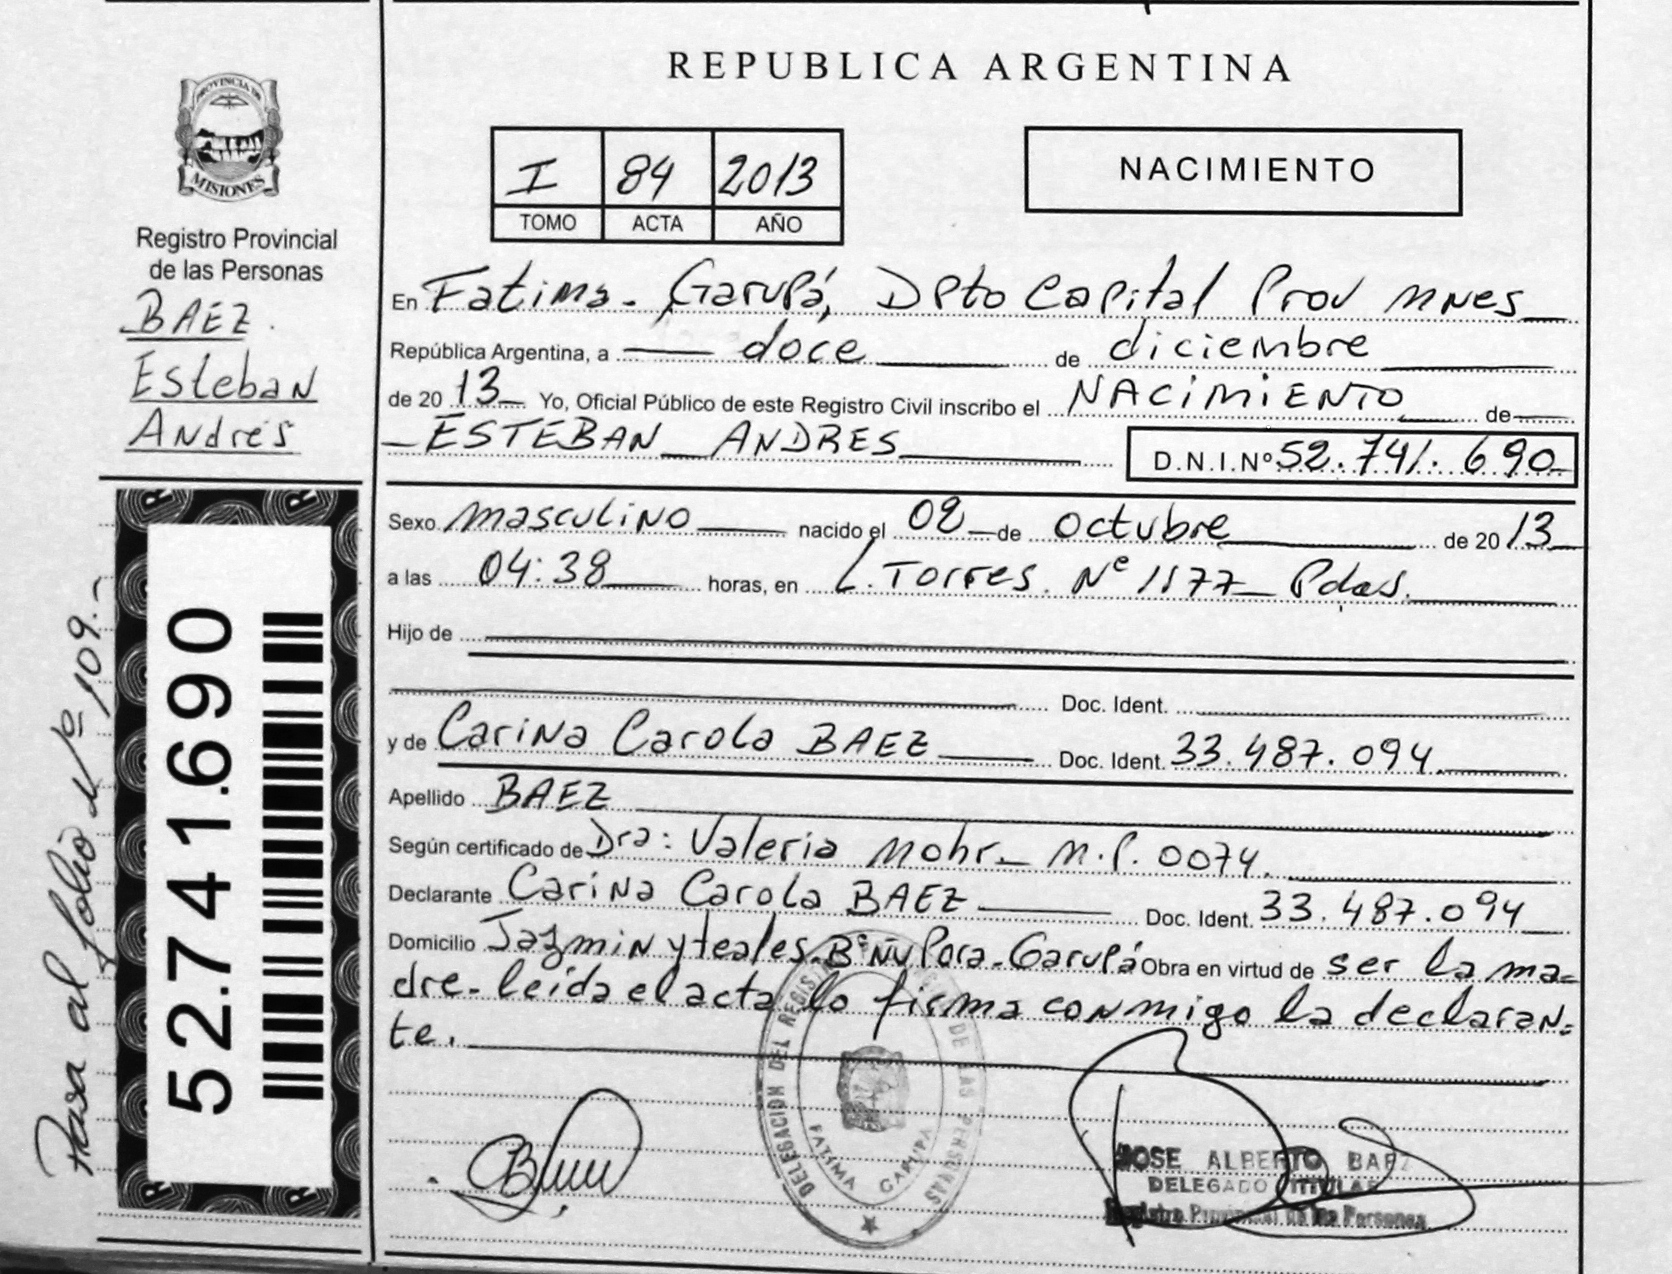 PROVINCIA DE
MISIONES
Registro Provincial
de las Personas
BAEZ.
Esteban
Andrés
52.741.690
Pasa al folio Nº 109.-
REPUBLICA ARGENTINA
I 84 2013
TOMO ACTA AÑO
NACIMIENTO
En Fatima - Garupá, Dpto Capital Prov MNES
República Argentina, a doce de diciembre
de 20 13 Yo, Oficial Público de este Registro Civil inscribo el NACIMIENTO de
ESTEBAN ANDRES D.N.I.Nº 52.741.690
Sexo masculino nacido el 02 de octubre de 20 13
a las 04:38 horas, en L. Torres Nº 1177 Pdas.
Hijo de
Doc. Ident.
y de Carina Carola BAEZ Doc. Ident. 33.487.094
Apellido BAEZ
Según certificado de Dra: Valeria Mohr - M.P. 0074
Declarante Carina Carola BAEZ Doc. Ident. 33.487.094
Domicilio Jazmin y teales - Bº Ñu Pora - Garupá Obra en virtud de ser la ma=
dre - leída el acta lo firma conmigo la declaran=
te.
DELEGACION DEL REGISTRO DE LAS PERSONAS
FATIMA GARUPA
JOSE ALBERTO BAEZ
DELEGADO TITULAR
Registro Provincial de las Personas